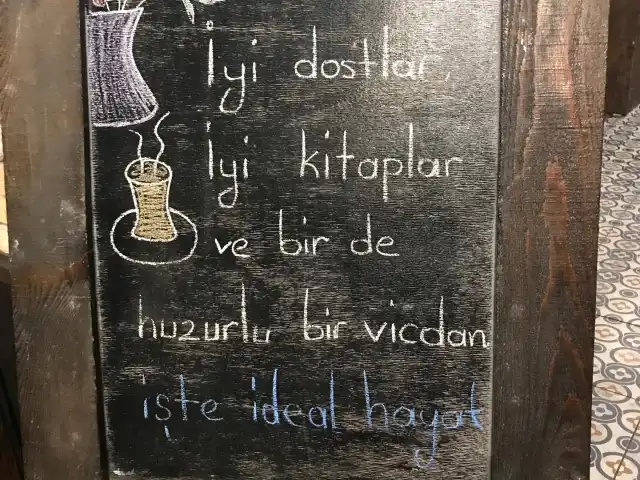 İyi dostlar,
İyi kitaplar
ve bir de
huzurlu bir vicdan
işte ideal hayat